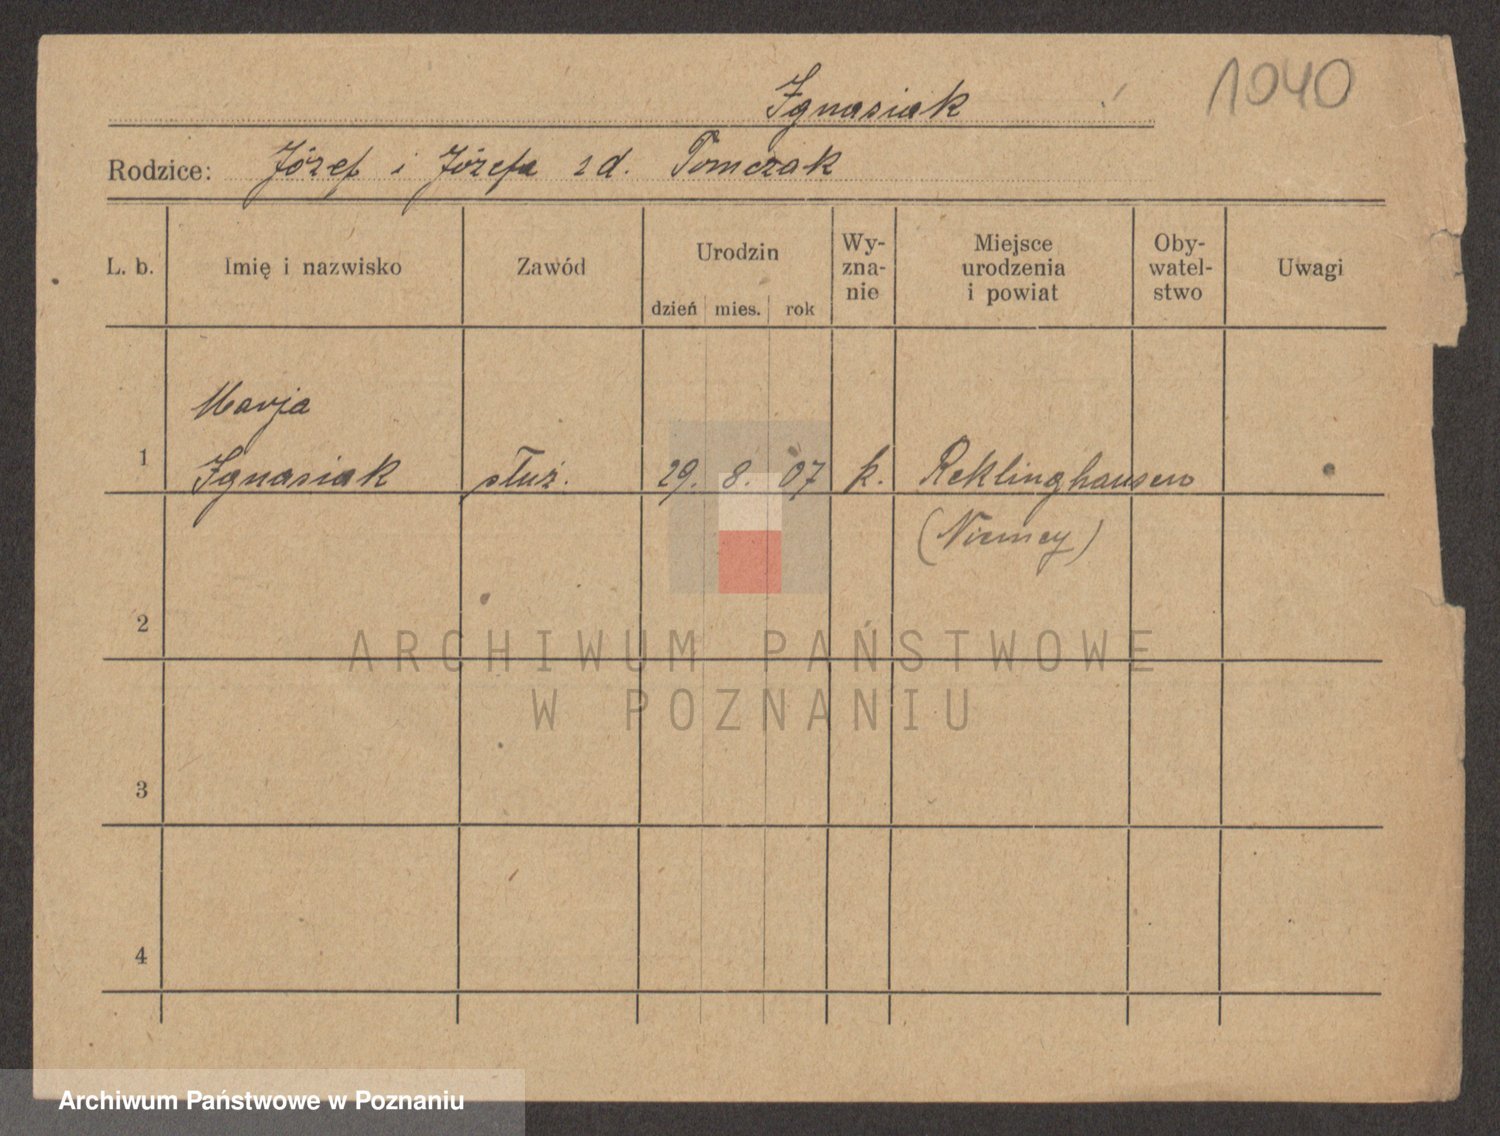 1040
Ignasiak
Rodzice: Józef i Józefa zd. Tomczak
L. b.
Imię i nazwisko
Zawód
Urodzin
dzień mies. rok
Wy-
zna-
nie
Miejsce
urodzenia
i powiat
Oby-
watel-
stwo
Uwagi
Marja
1 Ignasiak służ. 29. 8. 07 k. Reklinghausen
(Niemcy)
2
ARCHIWUM PAŃSTWOWE
W POZNANIU
3
4
Archiwum Państwowe w Poznaniu